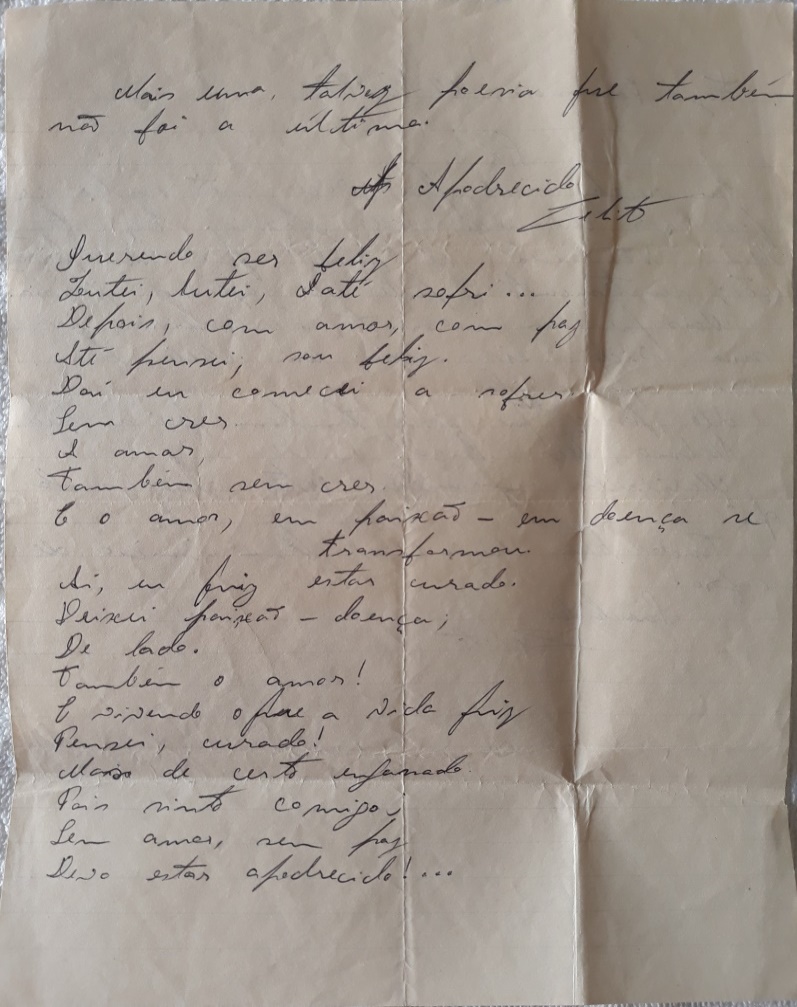 Mais uma, talvez poesia que também
não foi a última.
Apodrecido
Zelito
Querendo ser feliz
Lutei, lutei, e até sofri...
Depois, com amor, com paz
Até pensei; sou feliz.
Daí eu comecei a sofrer
Sem crer
A amar,
Também sem crer.
E o amor, em paixão - em doença se
transformou.
Aí, eu fiz estar curado.
Deixei paixão - doença;
De lado.
Também o amor!
E vivendo o que a vida fiz
Pensei, curado!
Mas de certo enganado
Pois sinto comigo,
Sem amor, sem paz
Devo estar apodrecido!...